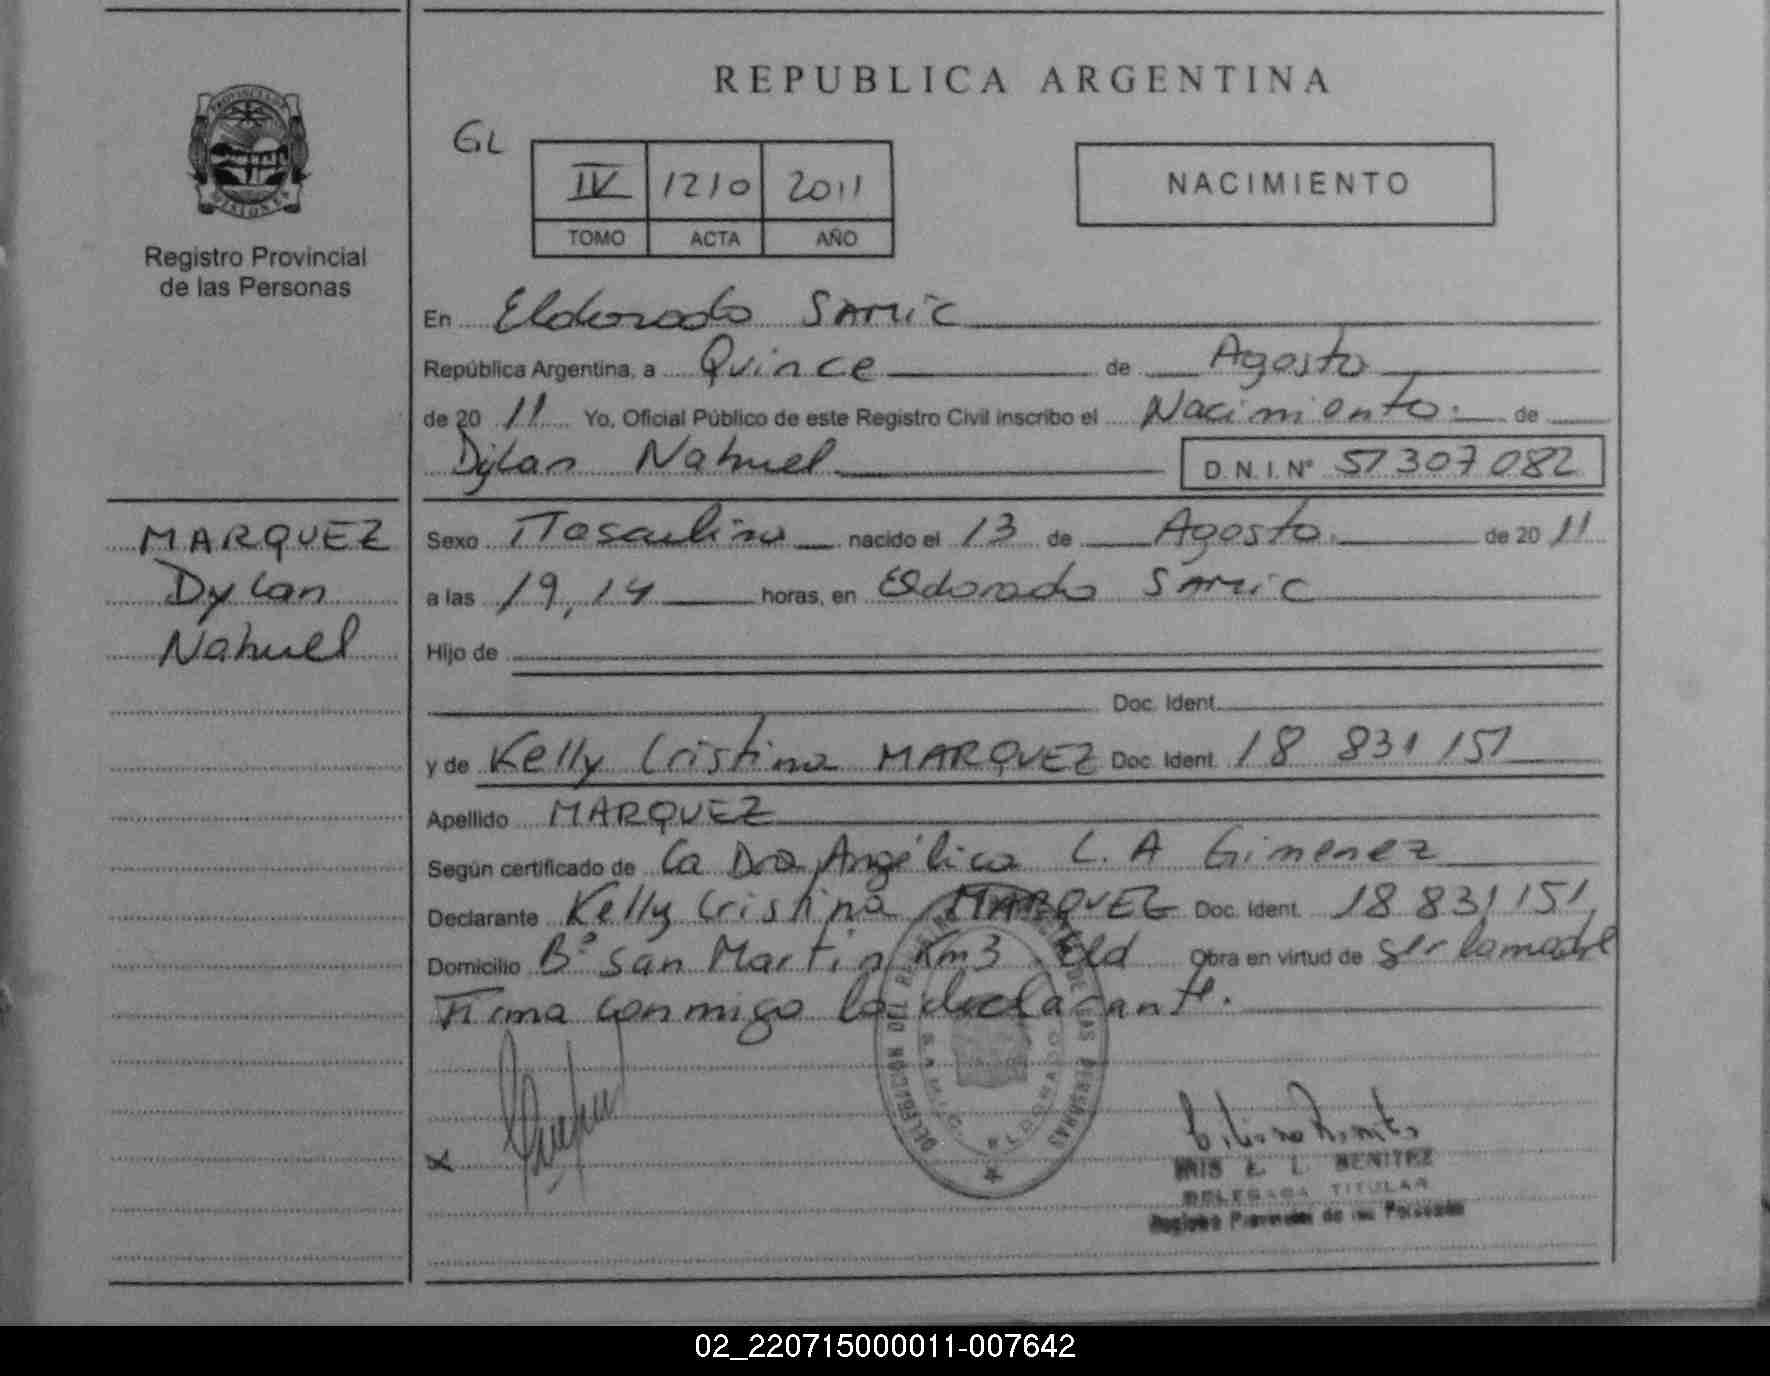 REPUBLICA ARGENTINA
PROVINCIA DE
MISIONES
Registro Provincial
de las Personas
GL
IV 1210 2011
TOMO ACTA AÑO
NACIMIENTO
En Eldorado SAMIC
República Argentina, a Quince de Agosto
de 20 11 Yo, Oficial Público de este Registro Civil inscribo el Nacimiento. de
Dylan Nahuel D.N.I. Nº 51 307 082
MARQUEZ
Dylan
Nahuel
Sexo Masculino nacido el 13 de Agosto de 20 11
a las 19,14 horas, en Eldorado SAMIC
Hijo de
Doc. Ident.
y de Kelly Cristina MARQUEZ Doc. Ident. 18 831 151
Apellido MARQUEZ
Según certificado de la Dra Angélica C. A Gimenez
Declarante Kelly Cristina MARQUEZ Doc. Ident. 18 831 151
Domicilio Bº San Martin Km3 Eld Obra en virtud de ser la madre
Firma conmigo la declarante.
x
DE LAS PERSONAS
SAMIC
ELDORADO
E. L. BENITEZ
DELEGADA TITULAR
Registro Provincial de las Personas
02_220715000011-007642